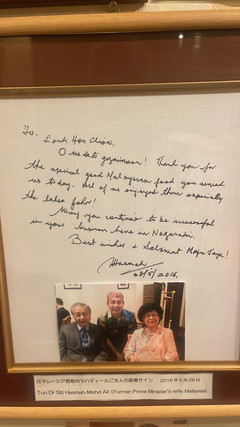 To,
Looh Hoe Chiow,
O medeto gozaimasu! Thank you for
the special good Malaysian food you served
us today. All of us enjoyed them especially
the laksa Johor!
May you continue to be successful
in your business here in Nagasaki.
Best wishes & Selamat Maju Jaya!
28/5/2016.
元マレーシア首相のマハティールご夫人の直筆サイン 2016年5月28日
Tun Dr Siti Hasmah Mohd Ali (Former Prime Minister's wife Malaysia)